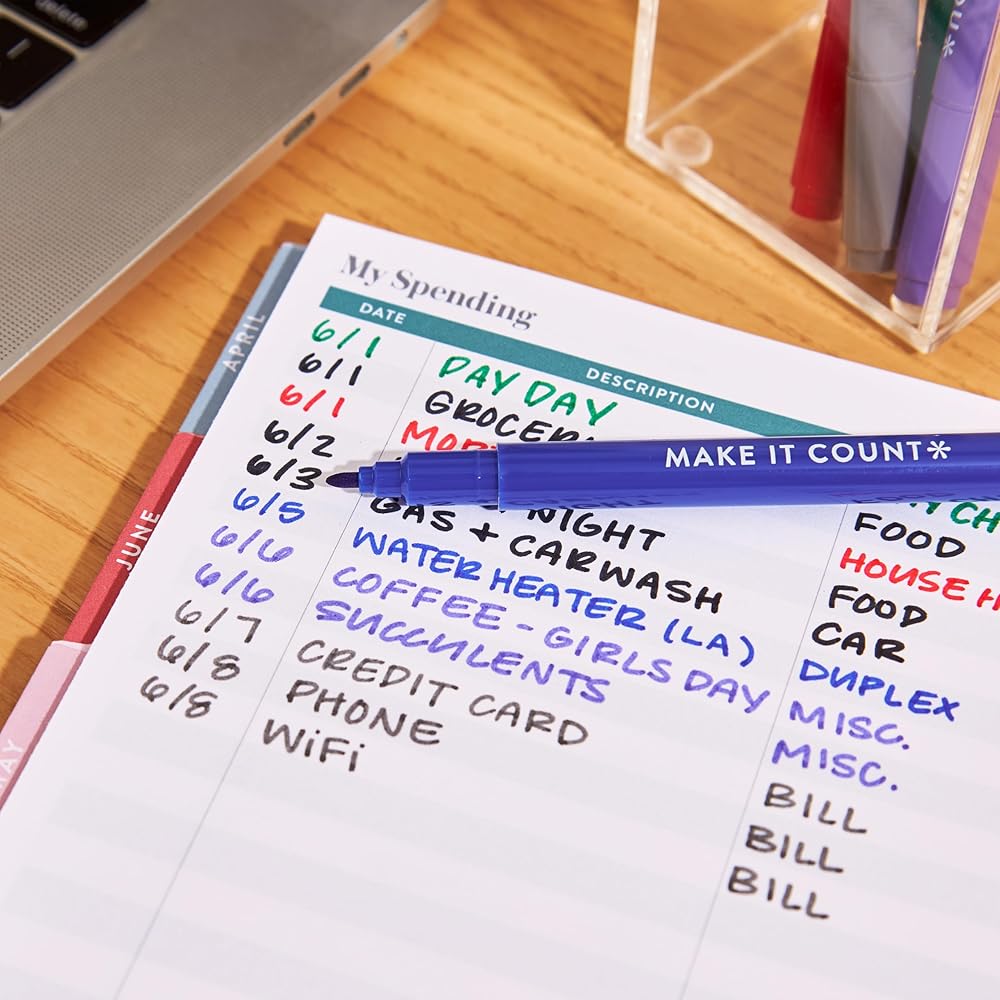 delete
My Spending
DATE DESCRIPTION
6/1 PAY DAY
6/1 FOOD
6/1 HOUSE
6/2 NIGHT FOOD
6/3 GAS + CARWASH CAR
6/5 WATER HEATER (LA) DUPLEX
6/6 COFFEE - GIRLS DAY MISC.
6/6 SUCCULENTS MISC.
6/7 CREDIT CARD BILL
6/8 PHONE BILL
6/8 WiFi BILL
MAKE IT COUNT*
APRIL
JUNE